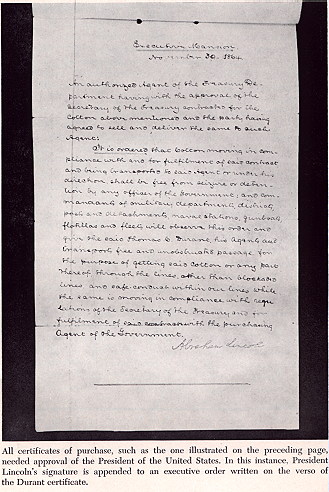 Executive Mansion
November 30, 1864.
An authorized Agent of the Treasury De-
partment having with the approval of the
Secretary of the Treasury contracted for the
Cotton above mentioned and the party having
agreed to sell and deliver the same to such
Agent:
It is ordered that Cotton moving in com-
pliance with and for fulfilment of said contract
and being transported to said Agent or under his
direction shall be free from seizure or deten-
tion by any officer of the Government: and com-
mandants of military departments, districts,
posts and detachments, naval stations, gunboats,
flotillas and fleets will observe this order and
give the said Thomas C. Durant, his Agents and
transports free and unobstructed passage for
the purpose of getting said Cotton or any part
thereof through the lines, other than blockaded
lines and safe conduct within our lines while
the same is moving in compliance with regu-
lations of the Secretary of the Treasury and for
fulfilment of said contract with the purchasing
Agent of the Government.
Abraham Lincoln
All certificates of purchase, such as the one illustrated on the preceding page,
needed approval of the President of the United States. In this instance, President
Lincoln's signature is appended to an executive order written on the verso of
the Durant certificate.